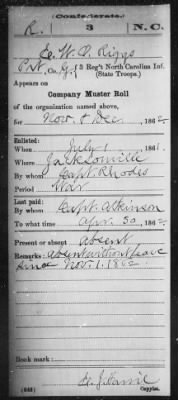 (Confederate.)
R. 3 N.C.
E. W. D. Riggs
Pvt, Co. G, 3 Reg't North Carolina Inf.
(State Troops.)
Appears on
Company Muster Roll
of the organization named above,
for Nov. & Dec., 1862
Enlisted:
When July 1, 1861.
Where Jacksonville
By whom Capt. Rhodes
Period War
Last paid:
By whom Capt. Atkinson
To what time Apr. 30, 1862
Present or absent Absent
Remarks: Absent without leave
since Nov. 1. 1862
Book mark:
(642) Copyist.